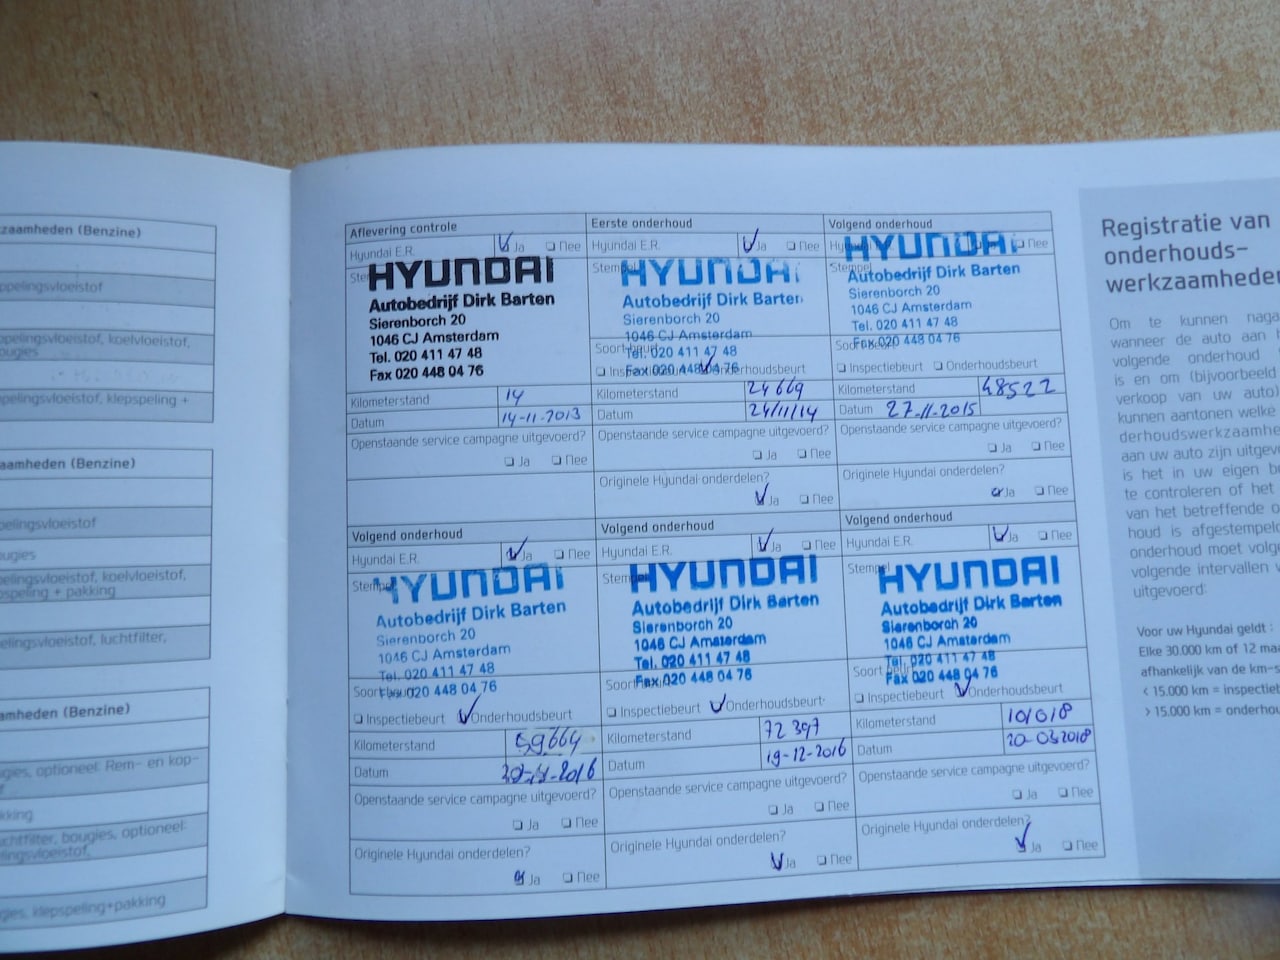 zaamheden (Benzine)
ppelingsvloeistof
pelingsvloeistof, koelvloeistof,
ougies
pelingsvloeistof, klepspeling +
zaamheden (Benzine)
pelingsvloeistof
ougies
pelingsvloeistof, koelvloeistof,
pspeling + pakking
elingsvloeistof, luchtfilter,
amheden (Benzine)
gies, optioneel: Rem- en kop-
kking
uchtfilter, bougies, optioneel:
lingsvloeistof,
gies, klepspeling+pakking
Aflevering controle
Hyundai E.R. Ja Nee
Stempel
HYUNDAI
Autobedrijf Dirk Barten
Sierenborch 20
1046 CJ Amsterdam
Tel. 020 411 47 48
Fax 020 448 04 76
Kilometerstand 14
Datum 14-11-2013
Openstaande service campagne uitgevoerd?
Ja Nee
Eerste onderhoud
Hyundai E.R. Ja Nee
Stempel
HYUNDAI
Autobedrijf Dirk Barten
Sierenborch 20
1046 CJ Amsterdam
Tel. 020 411 47 48
Fax 020 448 04 76
Soort beurt
Inspectiebeurt Onderhoudsbeurt
Kilometerstand 24669
Datum 24/11/14
Openstaande service campagne uitgevoerd?
Ja Nee
Originele Hyundai onderdelen?
Ja Nee
Volgend onderhoud
Hyundai E.R. Ja Nee
Stempel
HYUNDAI
Autobedrijf Dirk Barten
Sierenborch 20
1046 CJ Amsterdam
Tel. 020 411 47 48
Fax 020 448 04 76
Soort beurt
Inspectiebeurt Onderhoudsbeurt
Kilometerstand 48522
Datum 27-11-2015
Openstaande service campagne uitgevoerd?
Ja Nee
Originele Hyundai onderdelen?
Ja Nee
Volgend onderhoud
Hyundai E.R. Ja Nee
Stempel
HYUNDAI
Autobedrijf Dirk Barten
Sierenborch 20
1046 CJ Amsterdam
Tel. 020 411 47 48
Fax 020 448 04 76
Soort beurt
Inspectiebeurt Onderhoudsbeurt
Kilometerstand 59664
Datum
Openstaande service campagne uitgevoerd?
Ja Nee
Originele Hyundai onderdelen?
Ja Nee
Volgend onderhoud
Hyundai E.R. Ja Nee
Stempel
HYUNDAI
Autobedrijf Dirk Barten
Sierenborch 20
1046 CJ Amsterdam
Tel. 020 411 47 48
Fax 020 448 04 76
Soort beurt
Inspectiebeurt Onderhoudsbeurt
Kilometerstand 72397
Datum 19-12-2016
Openstaande service campagne uitgevoerd?
Ja Nee
Originele Hyundai onderdelen?
Ja Nee
Volgend onderhoud
Hyundai E.R. Ja Nee
Stempel
HYUNDAI
Autobedrijf Dirk Barten
Sierenborch 20
1046 CJ Amsterdam
Tel. 020 411 47 48
Fax 020 448 04 76
Soort beurt
Inspectiebeurt Onderhoudsbeurt
Kilometerstand 101018
Datum 20-03-2018
Openstaande service campagne uitgevoerd?
Ja Nee
Originele Hyundai onderdelen?
Ja Nee
Registratie van
onderhouds-
werkzaamheden
Om te kunnen naga
wanneer de auto aan
volgende onderhoud
is en om (bijvoorbeeld
verkoop van uw auto)
kunnen aantonen welke
derhoudswerkzaamhe
aan uw auto zijn uitgev
is het in uw eigen be
te controleren of het
van het betreffende o
houd is afgestempeld
onderhoud moet volge
volgende intervallen
uitgevoerd:
Voor uw Hyundai geldt :
Elke 30.000 km of 12 maa
afhankelijk van de km-s
< 15.000 km = inspectieb
> 15.000 km = onderhou